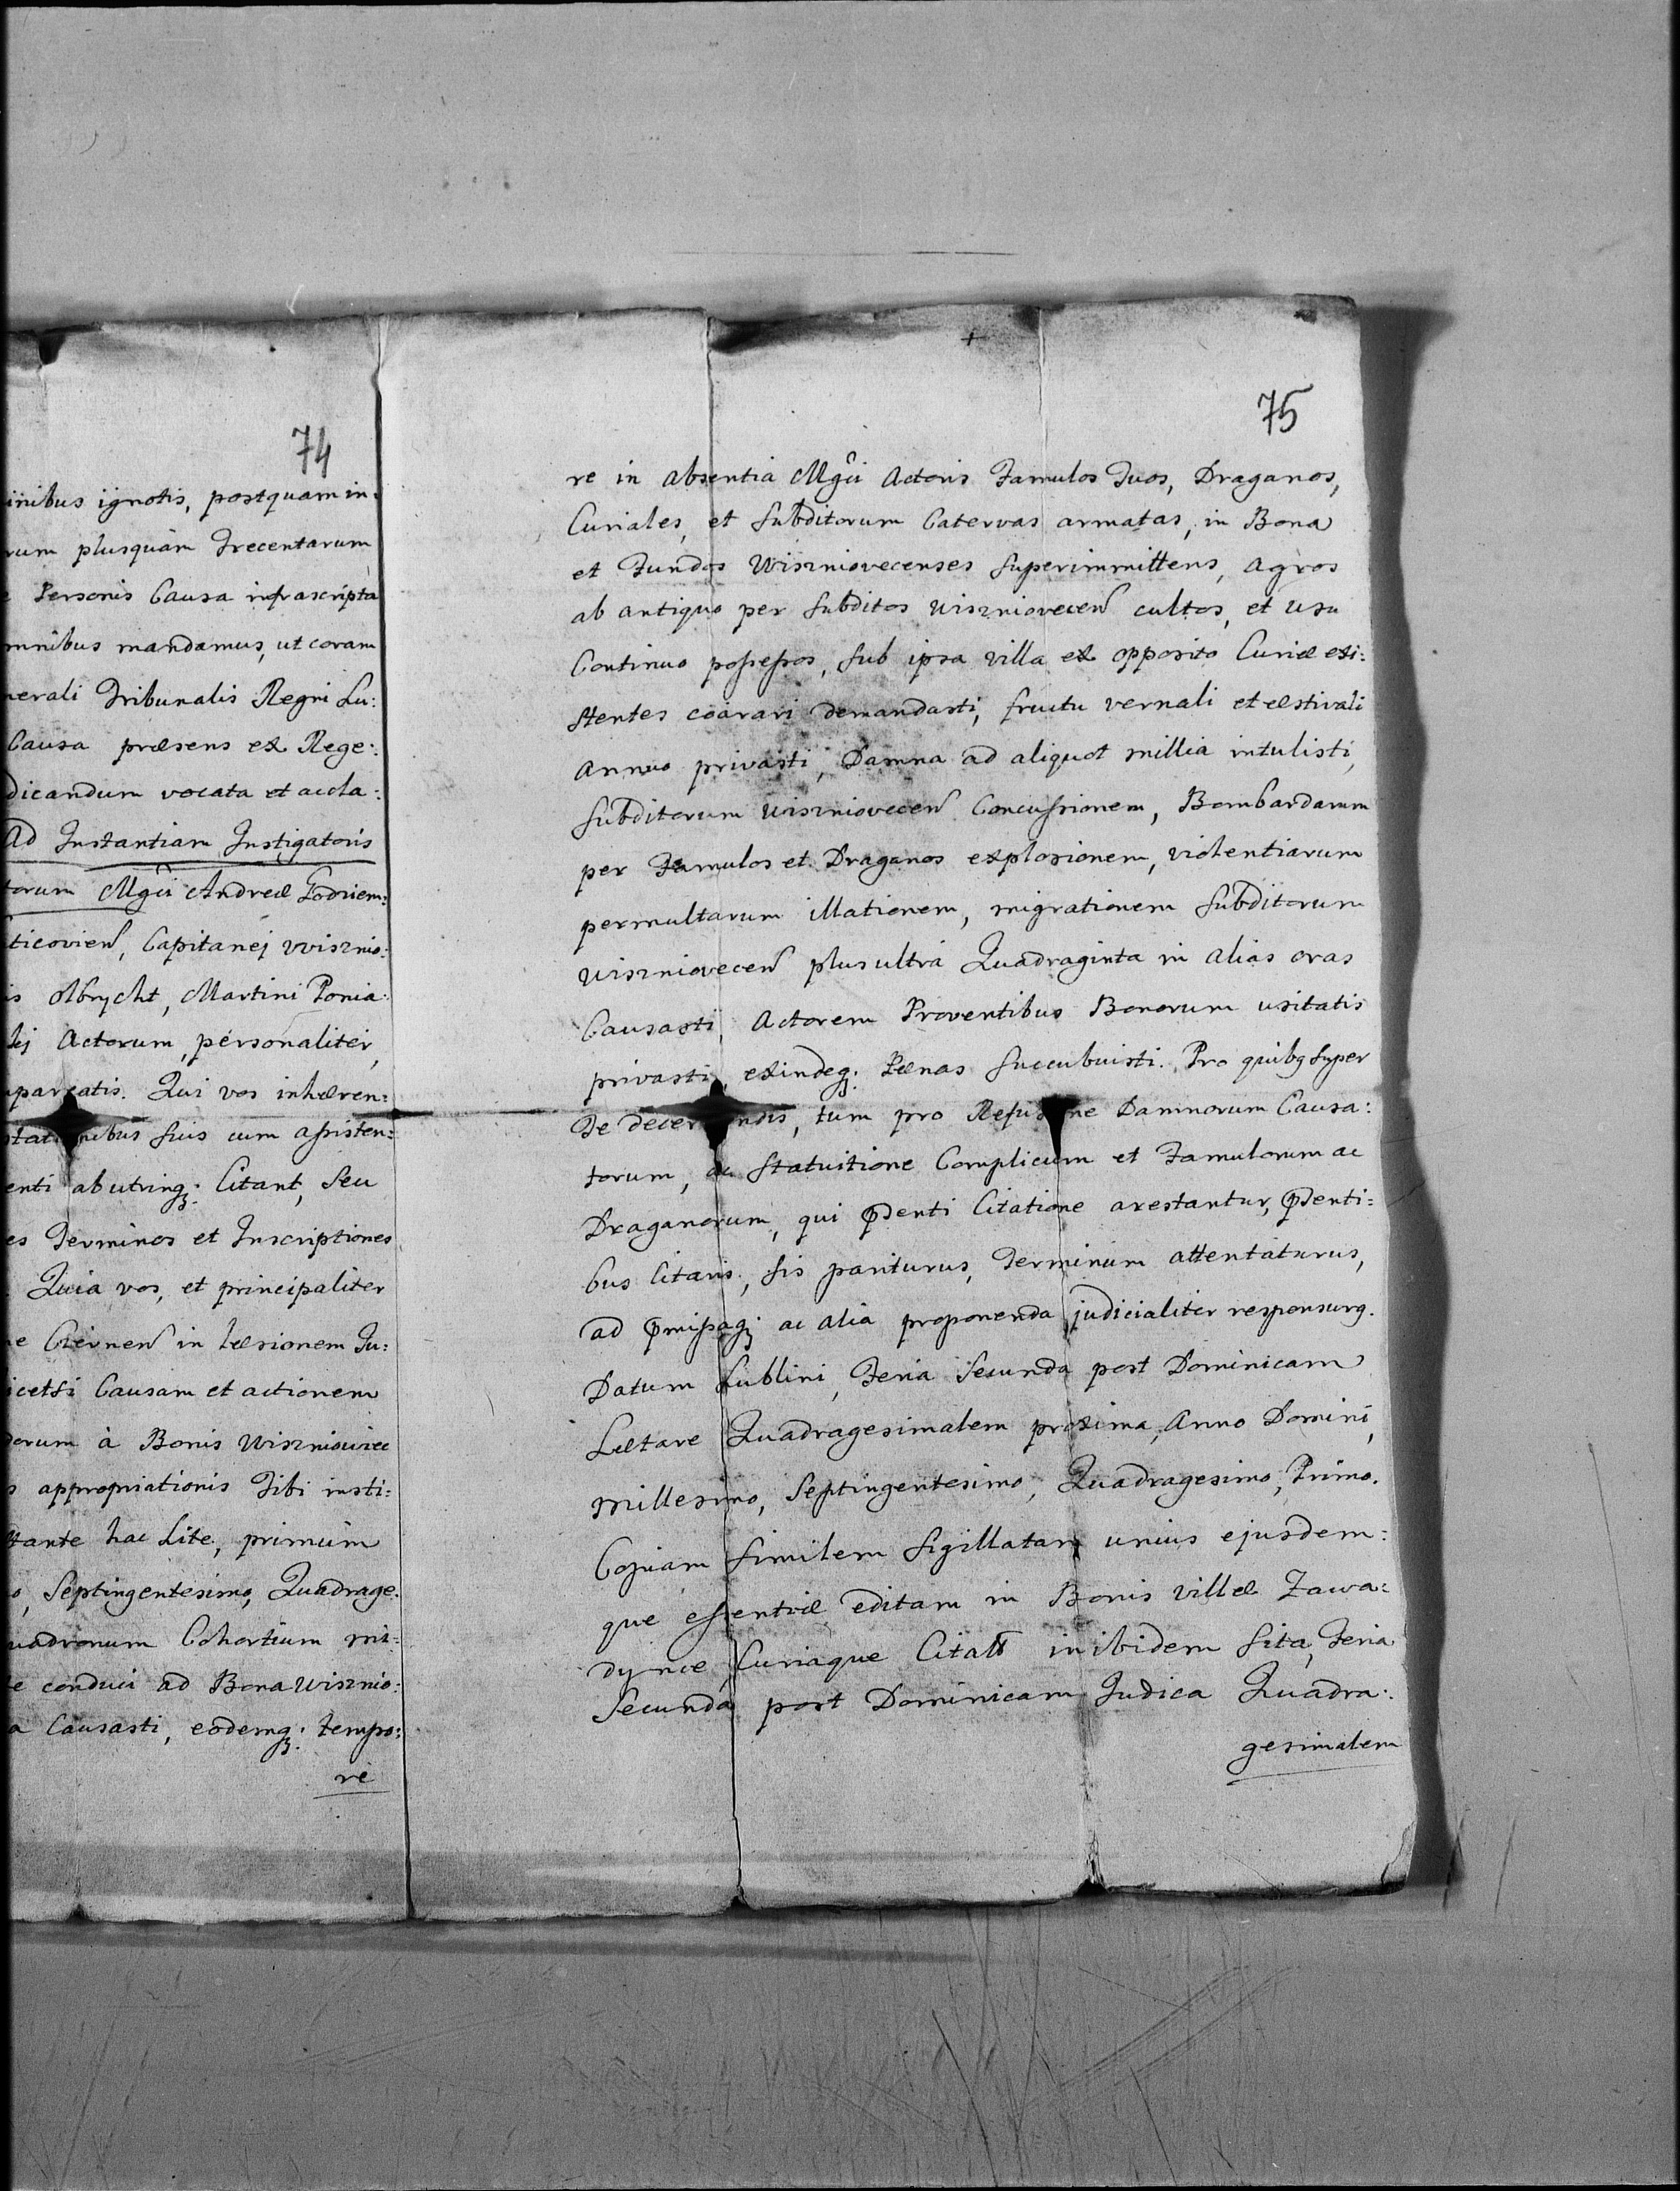 74
inibus ignotis, postquam in:
rum plusquàm Trecentarum
e Personis Causa infrascripta
mnibus mandamus, ut coram
nerali Tribunalis Regni Lu:
Causa præsens ex Rege:
dicandum vocata et accla:
Ad Instantiam Instigatoris
torum Mgci Andreæ
ticovien, Capitanej Wisznio:
is Olbrycht, Martini Ponia:
lej Actorum, personaliter,
mpareatis. Qui vos inhæren:
nibus suis cum assisten:
enti ab utrinq: Citant, seu
es Terminos et Inscriptiones
Quia vos, et principaliter
ne in læsionem Ju:
icetsi Causam et actionem
dorum à Bonis
s appropriationis Tibi insti:
tante hac Lite, primùm
o, Septingentesimo, Quadrage:
uadronum Cohortium mi:
te conduci ad Bona Wisznio:
a Causasti, eodemq: tempo:
re
75
re in absentia Mgci Actoris Famulos Tuos, Draganos,
Curiales, et Subditorum Catervas armatas, in Bona
et Fundos Wiszniovecenses superimmittens, agros
ab antiquo per subditos Wiszniovecen cultos, et usu
Continuo possessos, sub ipsa villa ex opposito Curiæ exi:
stentes coarari demandasti, fructu vernali et æstivali
annuo privasti, Damna ad aliquot millia intulisti,
subditorum Wiszniovecen Concussionem, Bombardarum
per Famulos et Draganos explosionem, violentiarum
permultarum illationem, migrationem subditorum
Wiszniovecen plus ultrà Quadraginta in alias oras
Causasti, Actorem Proventibus Bonorum usitatis
privasti, exindeq: Pænas succubuisti. Pro quibq super
Te decernendis, tum pro Refusione Damnorum Causa:
torum, ac statuitione Complicum et Famulorum ac
Draganorum, qui pdenti Citatione arestantur, pdenti:
bus Citaris, sis pariturus, Terminum attentaturus,
ad pmissaq: ac alia proponenda judicialiter responsurq.
Datum Lublini, Feria Secunda post Dominicam
Lætare Quadragesimalem proxima, Anno Domini,
Millesimo, Septingentesimo, Quadragesimo, Primo.
Copiam similem sigillatam unius ejusdem:
que essentiæ editam in Bonis villæ Zawa:
dynce, Curiaque Citati inibidem sita, Feria
Secunda post Dominicam Judica Quadra:
gesimalem